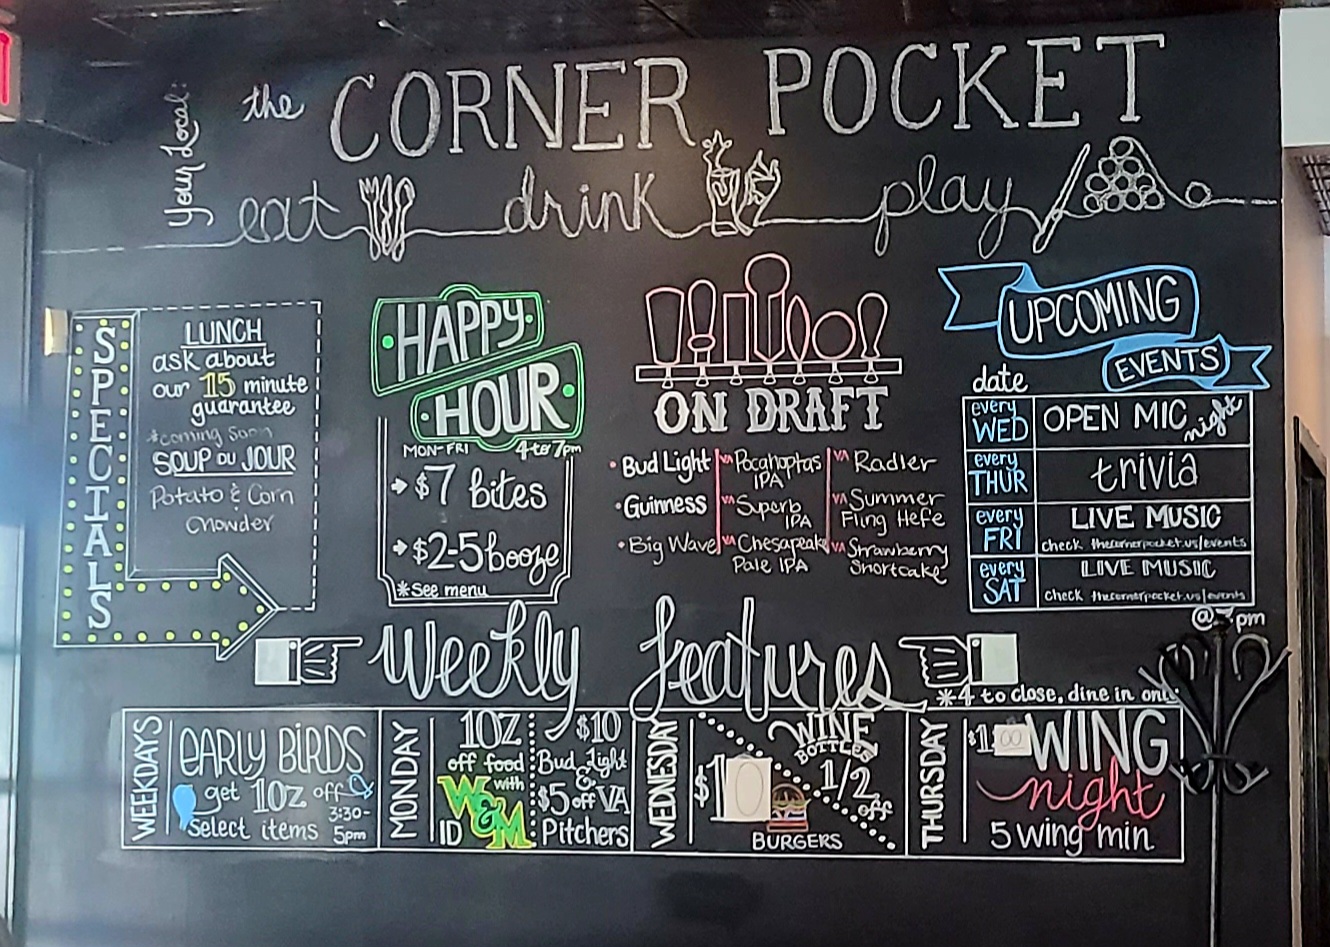 Your Local:
the CORNER POCKET
eat drink play
SPECIALS
LUNCH
ask about
our 15 minute
guarantee
*coming soon
SOUP DU JOUR
Potato & Corn
Chowder
HAPPY
HOUR
MON-FRI 4 to 7pm
$7 bites
$2-5 booze
*See menu
ON DRAFT
Bud Light
Guinness
Big Wave
VA Pocahoptas
IPA
VA Superb
IPA
VA Chesapeake
Pale IPA
VA Radler
VA Summer
Fling Hefe
VA Strawberry
Shortcake
UPCOMING
EVENTS
date
every
WED
OPEN MIC night
every
THUR
trivia
every
FRI
LIVE MUSIC
check thecornerpocket.us/events
every
SAT
LIVE MUSIC
check thecornerpocket.us/events
@ pm
Weekly features
*4 to close, dine in only
WEEKDAYS
EARLY BIRDS
get 10% off
select items
3:30-
5pm
MONDAY
10%
off food
with
W&M
ID
$10
Bud Light
&
$5 off VA
Pitchers
WEDNESDAY
$10
BURGERS
WINE
BOTTLES
1/2
off
THURSDAY
$1.00 WING
night
5 wing min.